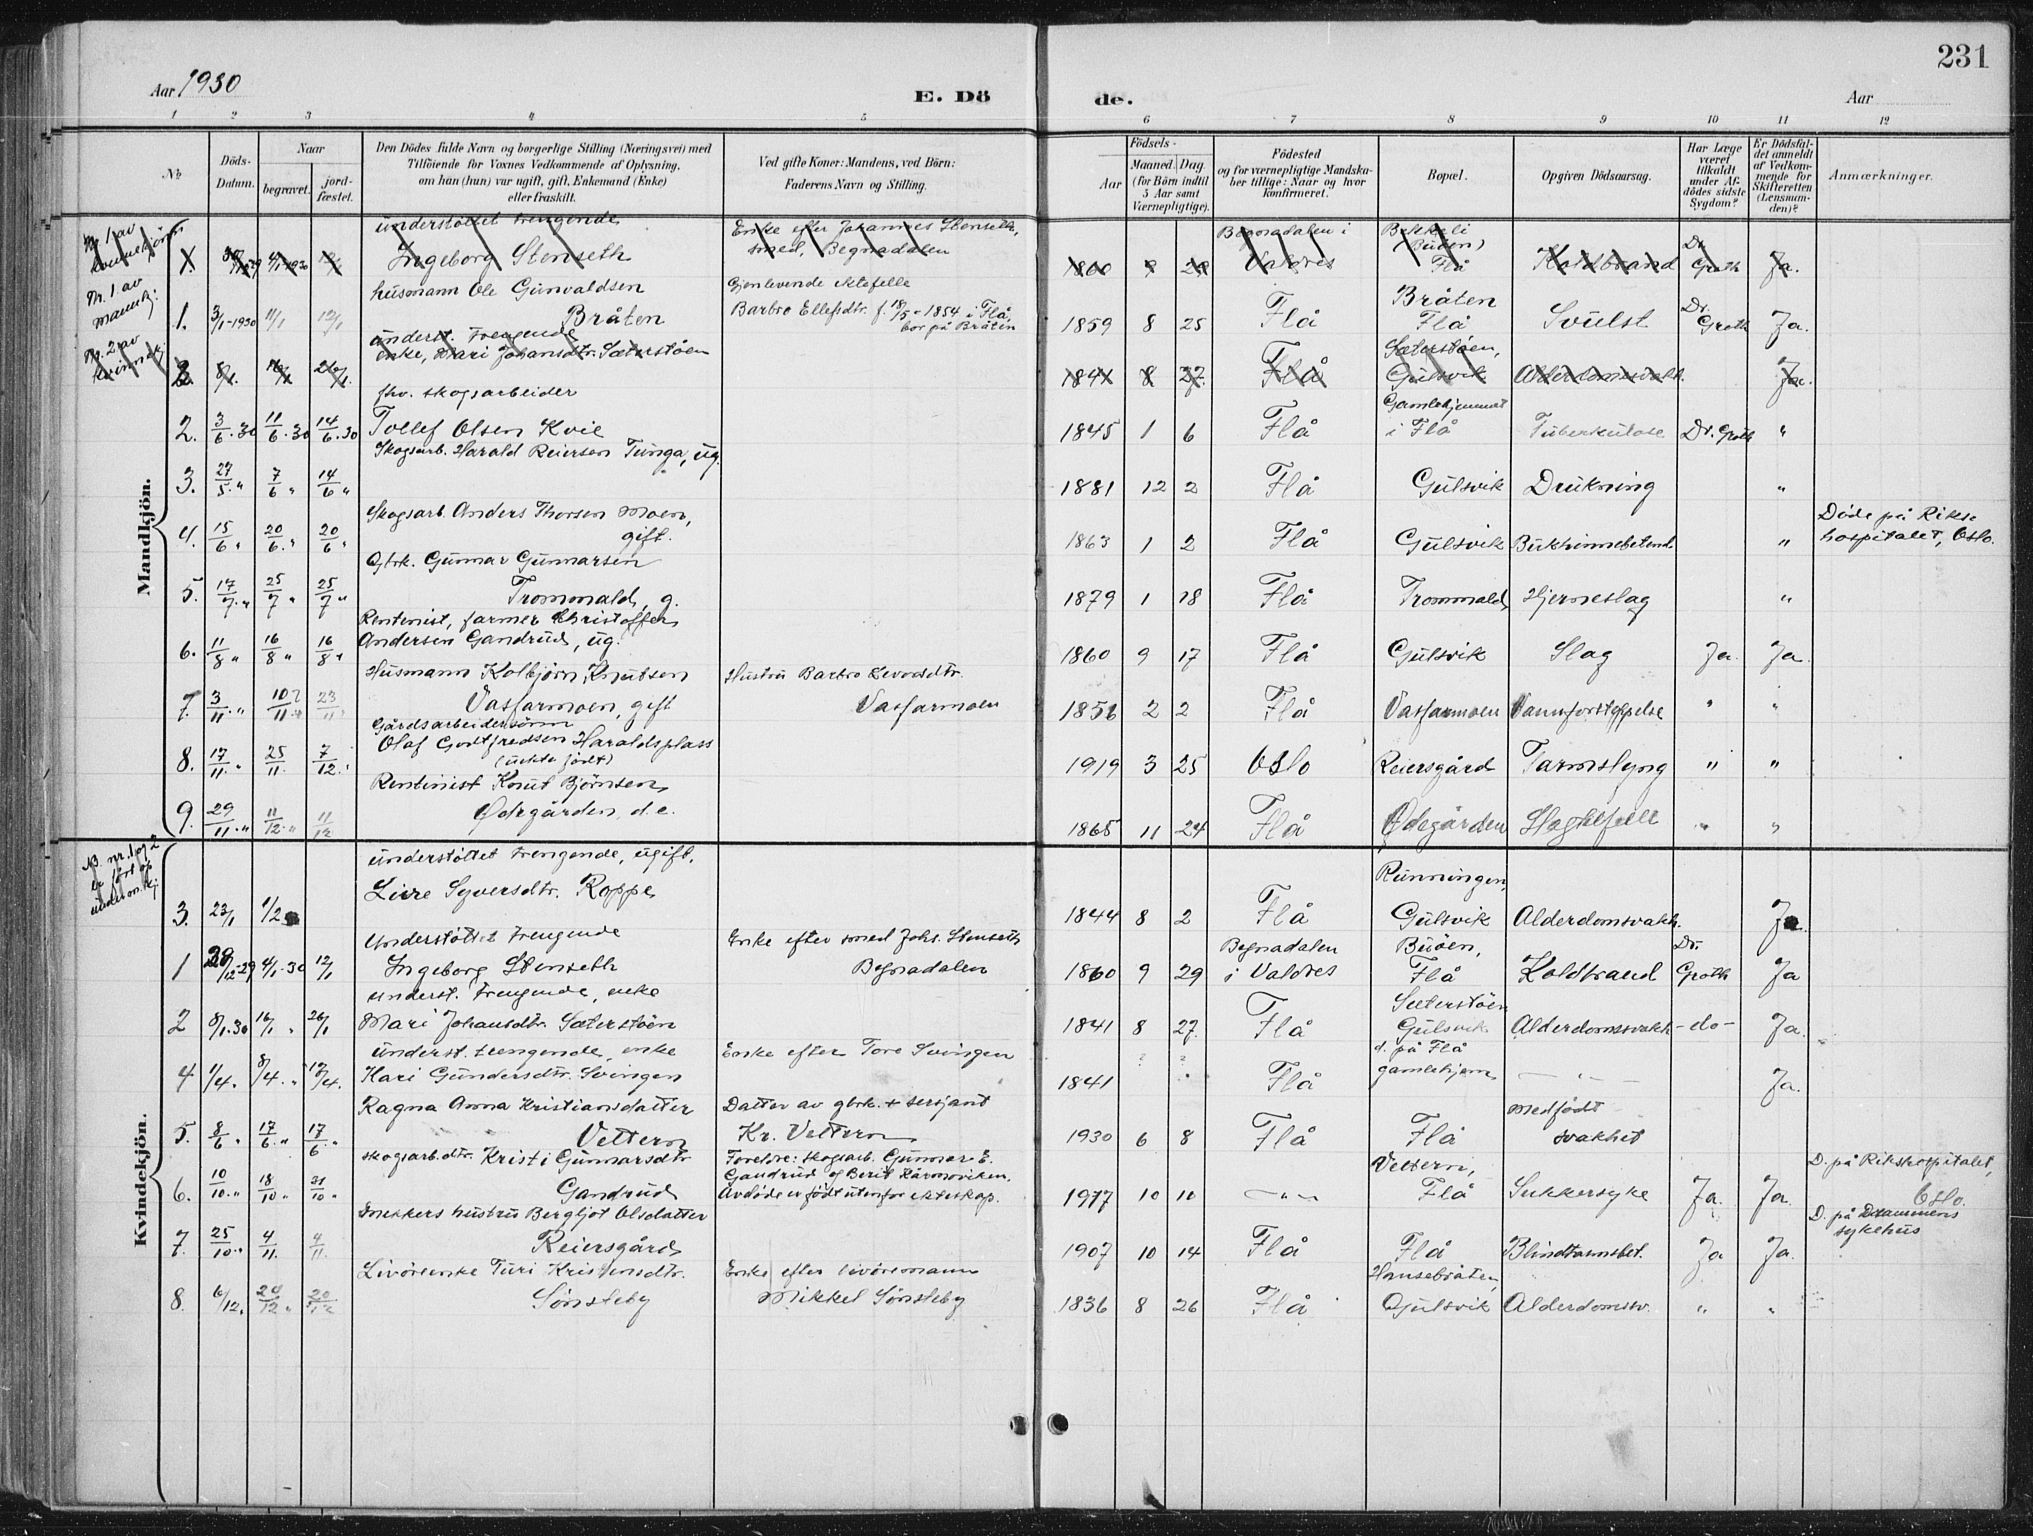 231
Aar 1930
E. Dö
de.
Aar
1 2 3 4 5 6 7 8 9 10 11 12
No
Döds-Datum.
Naar
begravet.
jord-fæstet.
Den Dödes fulde Navn og borgerlige Stilling (Næringsvei) med
Tilföiende for Voxnes Vedkommende af Oplysning,
om han (hun) var ugift, gift, Enkemand (Enke)
eller fraskilt.
Ved gifte Koner: Mandens, ved Börn:
Faderens Navn og Stilling.
Födsels-
Aar
Maaned. Dag.
(for Börn indtil
5 Aar samt
Værnepligtige).
Födested
og for værnepligtige Mandska-
ber tillige: Naar og hvor
konfirmeret.
Bopæl.
Opgiven Dödsaarsag.
Har Læge
været
tilkaldt
under Af-
dödes sidste
Sygdom?
Er Dödsfal-
det anmeldt
af Vedkom-
mende for
Skifteretten
(Lensman-
den)?
Anmærkninger.
Mandkjön.
Nr. 1 av
kvinnekjönn
understöttet trengende Enke efter Johannes Stenseth, Begnadalen i Bekkeli
(Buöen) Dr.
1. 4/1-1930 Ingeborg Stenseth smed, Begnadalen 1860 9 29 Valdres Flå Koldbrand Groth Ja.
Nr. 1 av
mannkj:
husmann Ole Gunvaldsen Gjenlevende ektefelle Bråten Dr.
1. 3/1-1930 11/1 12/1 Bråten Barbro Ellefsdtr. f. 18/5-1854 i Flå, 1859 8 25 Flå Flå Svulst Groth Ja.
bor på Bråten
Nr. 2 av
kvinnekj.
underst. trengende
2. 8/1. 16/1 26/1. enke, Mari Johansdtr. Sæterstöen 1841 8 27. Flå Sæterstöen, Gulsvik Alderdomssvakh. Ja.
fhv. skogsarbeider Gamlehjemmet
2. 3/6.30 11/6.30 14/6.30 Tollef Olsen Kvie 1845 1 6 Flå i Flå Tuberkulose Dr. Groth "
Skogsarb. Harald Reiersen Tunga, ug.
3. 27/5." 7/6 " 14/6 " 1881 12 2 Flå Gulsvik Drukning "
Skogsarb. Anders Thorsen Moen, Döde på Riks-
4. 15/6 " 20/6. " 20/6 " gift. 1863 1 2 Flå Gulsvik Bukhinnebetend. " hospitalet, Oslo.
Gbrk. Gunnar Gunnarsen
5. 17/7." 25/7 " 25/7 " Trommald, g. 1879 1 18 Flå Trommald Hjerneslag "
Rentenist, farmer Christoffer
6. 11/8 " 16/8 " 16/8 " Andersen Gandrud, ug. 1860 9 17 Flå Gulsvik Slag Ja. Ja.
Husmann Kolbjørn Knutsen Hustru Barbro Levordsdtr.
7. 3/11." 10?/11." 23/11 " Vasfarmoen, gift Vasfarmoen 1856 2 2 Flå Vasfarmoen Vannforstoppelse " "
Gårdsarbeidersönn
Olaf Godtfredsen Haraldsplass
8. 17/11. " 25/11. 7/12. " (uekte födt) 1919 3 25 Oslo Reiersgård Tarmslyng " "
Rentenist Knut Bjørnsen
9. 29/11." 11/12." 11/12 Ødegården, d.e. 1865 11 24 Flå Ødegården " "
Kvindekjön.
NB. nr. 1 og 2
er fört op
under m.kj.
understöttet trengende, ugift. Runningen,
3. 23/1 1/2 Live Syversdtr. Roppe 1844 8 2 Flå Gulsvik Alderdomsvakh. Ja.
Understöttet trengende Enke efter smed Johs. Stenseth Begnadalen Buöen, Dr.
1 28/12-29 4/1-30 12/1 Ingeborg Stenseth Begnadalen 1860 9 29 i Valdres Flå Koldbrand Groth Ja
underst. trengende, enke Sæterstöen
2 8/1.30 16/1 " 26/1 Mari Johansdtr. Sæterstöen 1841 8 27. Flå Gulsvik Alderdomssvakh -do- Ja.
underst. trengende, enke Enke efter Tore Svingen ? ? d. på Flå
4 1/4. 8/4. " 12/4. Kari Gundersdtr. Svingen 1841 Flå gamlehjem — " — Ja.
Ragna Anna Kristiansdatter Datter av gbrk. + sersjant Medfödt
5. 8/6 " 17/6. " 17/6. " Vettern Kr. Vettern 1930 6 8 Flå Flå svakhet
skogsarb.dtr. Kristi Gunnarsdtr. Foreldre: skogsarb. Gunnar E. Vettern, D. på Rikshospitalet,
Gandrud og Berit
6. 10/10." 18/10 " 21/10 " Gandrud Avdöde er födt utenfor ekteskap. 1917 10 10 — " — Flå Sukkersyke Ja. Ja. Oslo.
Snekkers hustru Bergljot Olsdatter D. på Drammens
7. 25/10." 4/11. 4/11. Reiersgård 1907 10 14 Flå Flå Blindtarmsbet. Ja Ja. sykehus
Livöreenke Turi Kristensdtr. Enke efter livöremann Hansebråten,
8. 6/12. 20/12 " 20/12 Sönsteby Mikkel Sönsteby 1836 8 26 Flå Gulsvik Alderdomsv. " "